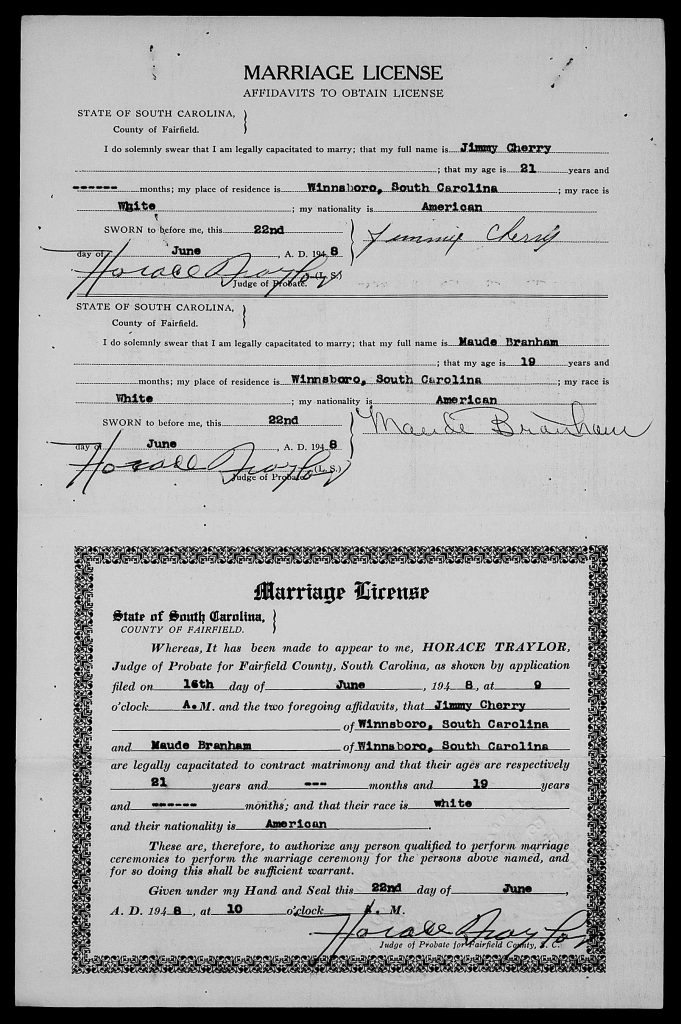 MARRIAGE LICENSE
AFFIDAVITS TO OBTAIN LICENSE
STATE OF SOUTH CAROLINA,
County of Fairfield.
I do solemnly swear that I am legally capacitated to marry; that my full name is Jimmy Cherry
; that my age is 21 years and
------ months; my place of residence is Winnsboro, South Carolina ; my race is
White ; my nationality is American
SWORN to before me, this 22nd
Jimmie Cherry
day of June , A. D. 194 8
Horace Traylor (L. S.)
Judge of Probate.
STATE OF SOUTH CAROLINA,
County of Fairfield.
I do solemnly swear that I am legally capacitated to marry; that my full name is Maude Branham
; that my age is 19 years and
months; my place of residence is Winnsboro, South Carolina ; my race is
White ; my nationality is American
SWORN to before me, this 22nd
Maude Branham
day of June , A. D. 194 8
Horace Traylor (L. S.)
Judge of Probate.
Marriage License
State of South Carolina,
COUNTY OF FAIRFIELD.
Whereas, It has been made to appear to me, HORACE TRAYLOR,
Judge of Probate for Fairfield County, South Carolina, as shown by application
filed on 16th day of June , 194 8, at 9
o'clock A. M. and the two foregoing affidavits, that Jimmy Cherry
of Winnsboro, South Carolina
and Maude Branham of Winnsboro, South Carolina
are legally capacitated to contract matrimony and that their ages are respectively
21 years and --- months and 19 years
and ------ months; and that their race is white
and their nationality is American .
These are, therefore, to authorize any person qualified to perform marriage
ceremonies to perform the marriage ceremony for the persons above named, and
for so doing this shall be sufficient warrant.
Given under my Hand and Seal this 22nd day of June ,
A. D. 194 8 , at 10 o'clock A. M.
Horace Traylor
Judge of Probate for Fairfield County, S. C.